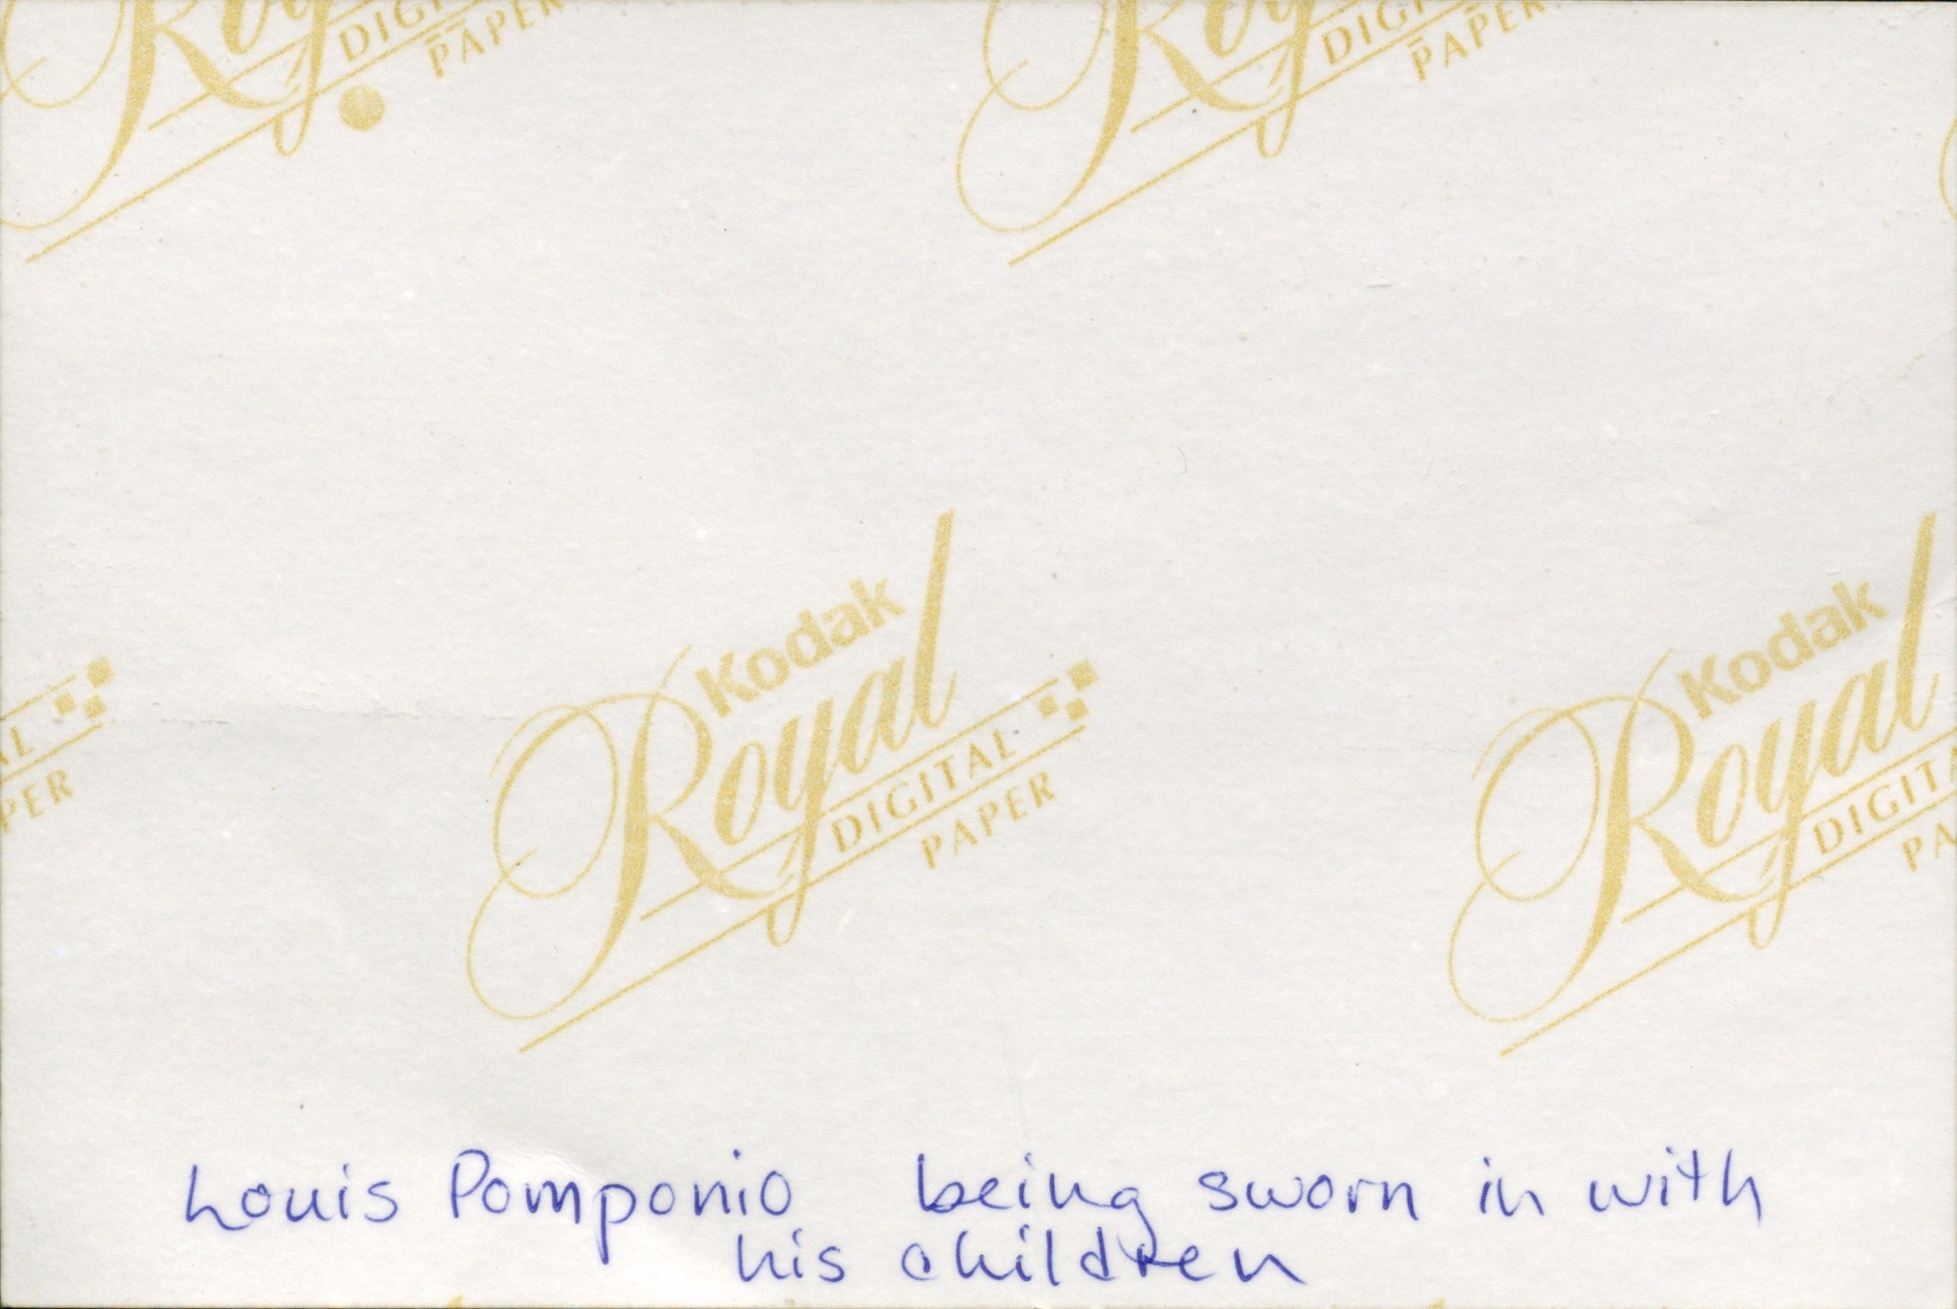 Royal
DIGI
PAPER
Royal
DIGI
PAPER
Kodak
Royal
DIGITAL
PAPER
Kodak
Royal
DIGITA
PA
AL
PER
Louis Pomponio being sworn in with
his children